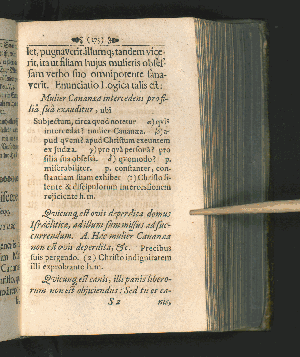 (273)
set, pugnaverit illumq; tandem vice-
rit, ita ut filiam hujus mulieris obses-
sam verbo suo omnipotente sana-
verit. Enunciatio Logica talis est:
Mulier Cananæa intercedens pro fi-
liâ suâ exauditur, ubi
Subjectum, circa quod notetur α) quis
intercedat? mulier Cananæa. β) a-
pud quem? apud Christum exeuntem
ex Judæa. γ) pro quâ personâ? pro
filia sua obsessa. δ) quomodo? 
miserabiliter. constanter, con-
stantiam suam exhibet (1) Christo si-
lente & discipulorum intercessionem
rejiciente h.m.
Quicunq; est ovis deperdita domus
Israëlitica, ad illum sum missus ad suc-
currendum. A. Hæc mulier Cananæa
non est ovis deperdita, &c. Precibus
suis pergendo. (2) Christo indignitatem
illi exprobrante h.m.
Quicunq; est canis, illi panis libero-
rum non est objiciendus: Sed tu es ca-
S 2 nis,